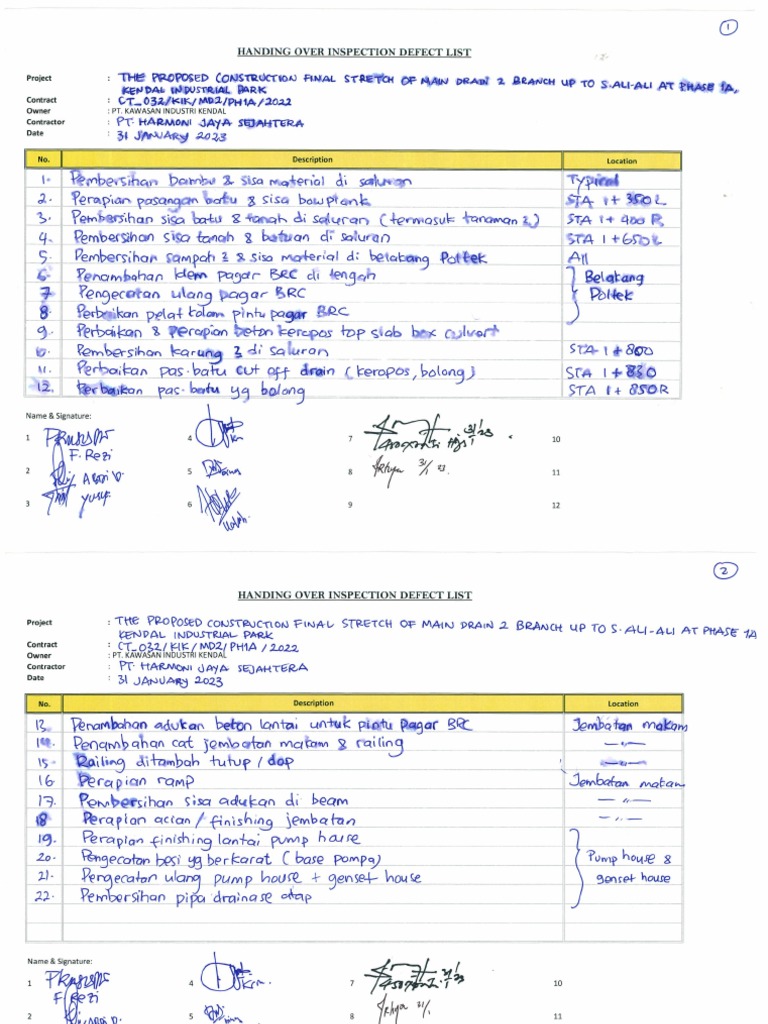 1
HANDING OVER INSPECTION DEFECT LIST
Project : THE PROPOSED CONSTRUCTION FINAL STRETCH OF MAIN DRAIN 2 BRANCH UP TO S.ALI-ALI AT PHASE 1A,
KENDAL INDUSTRIAL PARK
Contract : CT_032/KIK/MD2/PH1A/2022
Owner : PT. KAWASAN INDUSTRI KENDAL
Contractor : PT. HARMONI JAYA SEJAHTERA
Date : 31 JANUARY 2023
No. Description Location
1. Pembersihan bambu & sisa material di saluran Typical
2. Perapian pasangan batu & sisa bowplank STA 1+350 L
3. Pembersihan sisa batu & tanah di saluran (termasuk tanaman2) STA 1+400 R
4. Pembersihan sisa tanah & batuan di saluran STA 1+650 L
5. Pembersihan sampah2 & sisa material di belakang Poltek All
6. Penambahan Idem pagar BRC di tengah Belakang
7 Pengecatan ulang pagar BRC Poltek
8 Perbaikan pelat kolam pintu pagar BRC
9. Perbaikan & perapian beton keropos top slab box culvert
10. Pembersihan karung2 di saluran STA 1+800
11. Perbaikan pas.batu cut off drain (keropos, bolong) STA 1+830
12. Perbaikan pas.batu yg bolong STA 1+850R
Name & Signature:
1 F. Rezi 4 7 31/1 23 10
2 5 8 31/1 23. 11
3 Yusuf 6 9 12
2
HANDING OVER INSPECTION DEFECT LIST
Project : THE PROPOSED CONSTRUCTION FINAL STRETCH OF MAIN DRAIN 2 BRANCH UP TO S.ALI-ALI AT PHASE 1A
KENDAL INDUSTRIAL PARK
Contract : CT_032/KIK/MD2/PH1A/2022
Owner : PT. KAWASAN INDUSTRI KENDAL
Contractor : PT. HARMONI JAYA SEJAHTERA
Date : 31 JANUARY 2023
No. Description Location
13. Penambahan adukan beton lantai untuk pintu pagar BRC Jembatan makam
14. Penambahan cat jembatan makam & railing —〃—
15. Railing ditambah tutup / dop —〃—
16 Perapian ramp Jembatan makam
17. Pembersihan sisa adukan di beam —〃—
18 Perapian acian / finishing jembatan —〃—
19. Perapian finishing lantai pump house
20. Pengecatan besi yg berkarat (base pompa) Pump house &
21. Pengecatan ulang pump house + genset house genset house
22. Pembersihan pipa drainase atap
Name & Signature:
1 F Rezi 4 7 31/1 23 10
2 5 8 31/1 11